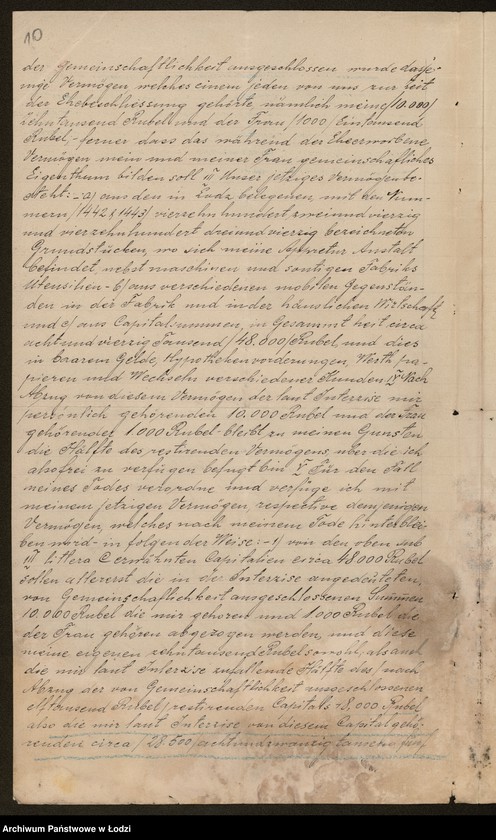 10
der Gemeinschaftlichkeit ausgeschlossen wurde dasje-
nige Vermögen welches einem jeden von uns zur Zeit
der Eheschliessung gehörte nämlich meine /10.000/
zehntausend Rubel und der Frau /1000/ Eintausend
Rubel,- ferner dass das während der Ehe erworbene
Vermögen mein und meiner Frau gemeinschaftliches
Eigenthum bilden soll III Unser jetziges Vermögen be-
steht:- a) aus den in Lodz belegenen, mit den Num-
mern /1442 & 1443/ vierzehnhundert zweiundvierzig
und vierzehnhundert dreiundvierzig bezeichneten
Grundstücken, wo sich meine Appretur Anstalt
befindet, nebst maschinen und sonstigen Fabriks
Utensilien - b) aus verschiedenen mobilen Gegenstän-
den in der Fabrik und in der häuslichen Wirtschaft
und c) aus Capitalsummen, in Gesammtheit circa
achtundvierzig Tausend /48.000/ Rubel und dies
in baarem Gelde, Hypothekenvorderungen, Werth pa-
pieren und Wechseln verschiedener Kunden IV Nach
Abzug von diesem Vermögen der laut Interzise mir
persönlich gehörenden 10.000 Rubel und der Frau
gehörenden 1000 Rubel - bleibt zu meinen Gunsten
die Hälfte des restirenden Vermögens, über die ich
also frei zu verfügen befugt bin V Für den Fall
meines Todes verordne und verfüge ich mit
meinem jetzigen Vermögen, respective demjenigen
Vermögen, welches nach meinem Tode hinterblei-
ben wird - in folgender Weise:- 1) von den oben sub
III littera C erwähnten Capitalien circa 48000 Rubel
sollen allererst die in der Interzise angedeuteten,
von Gemeinschaftlichkeit ausgeschlossenen Summen
10.000 Rubel die mir gehören und 1000 Rubel die
der Frau gehören abgezogen werden, und diese
meine eigenen zehntausend Rubel sowohl, als auch
die mir laut Interzise zufallende Hälfte des /nach
Abzug der von Gemeinschaftlichkeit ausgeschlossenen
Elftausend Rubel/ restirenden Capitals 18.000 Rubel
also die mir laut Interzise von diesem Capital gehö-
renden circa /28.500/ achtundzwanzig tausend fünf
Archiwum Państwowe w Łodzi